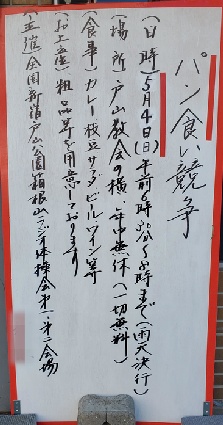 パン食い競争
(日時)5月4日(日)午前6時半〜8時まで(雨天決行)
(場所)戸山教会の横 年中無休(一切無料)
(食事)カレー 枝豆 サラダ ビール ワイン 等
(お土産)粗品等を用意しております
(主催)全国新宿戸山公園箱根山ラジオ体操会第一・第二会場